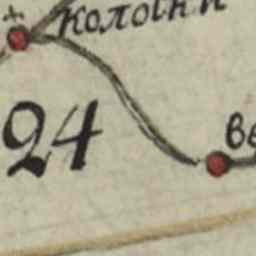 колотки
24
ве